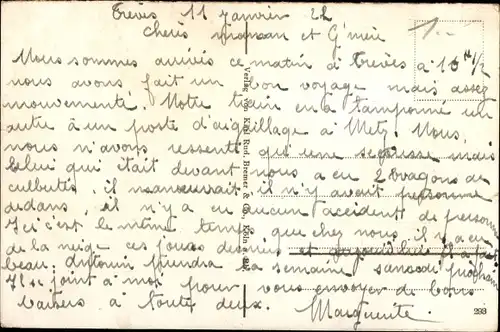 Trèves 11 Janvier 22
Chers maman et G'mère
Nous sommes arrivés ce matin à Trèves à 10 H 1/2
nous avons fait un bon voyage mais assez
mouvementé. Notre train en a tamponné un
autre à un poste d'aiguillage à Metz. Nous,
nous n'avons ressenti qu'une secousse mais
celui qui était devant nous a eu 2 wagons de
culbutés, il manoeuvrait il n'y avait personne
dedans, il n'y a eu aucun accident de personne
Ici c'est le même temps que chez nous, il y a eu
de la neige ces jours derniers et aujourd'hui il fait
beau. Antonin prendra sa semaine samedi prochain
Il se joint à moi pour vous envoyer de bons
baisers à toutes deux. Marguerite.
Verlag von Karl Rud. Bremer & Co., Köln a. Rh.
293